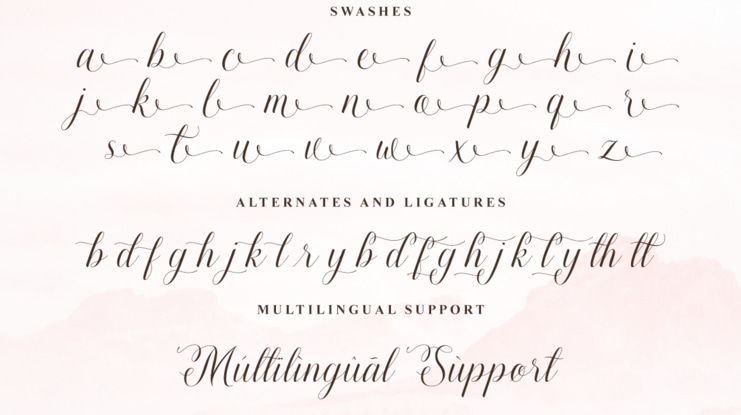 SWASHES
a b c d e f g h i
j k l m n o p q r
s t u v w x y z
ALTERNATES AND LIGATURES
b d f g h j k l r y b d f g h j k l y th tt
MULTILINGUAL SUPPORT
Múltïlìngùāl Sùpport